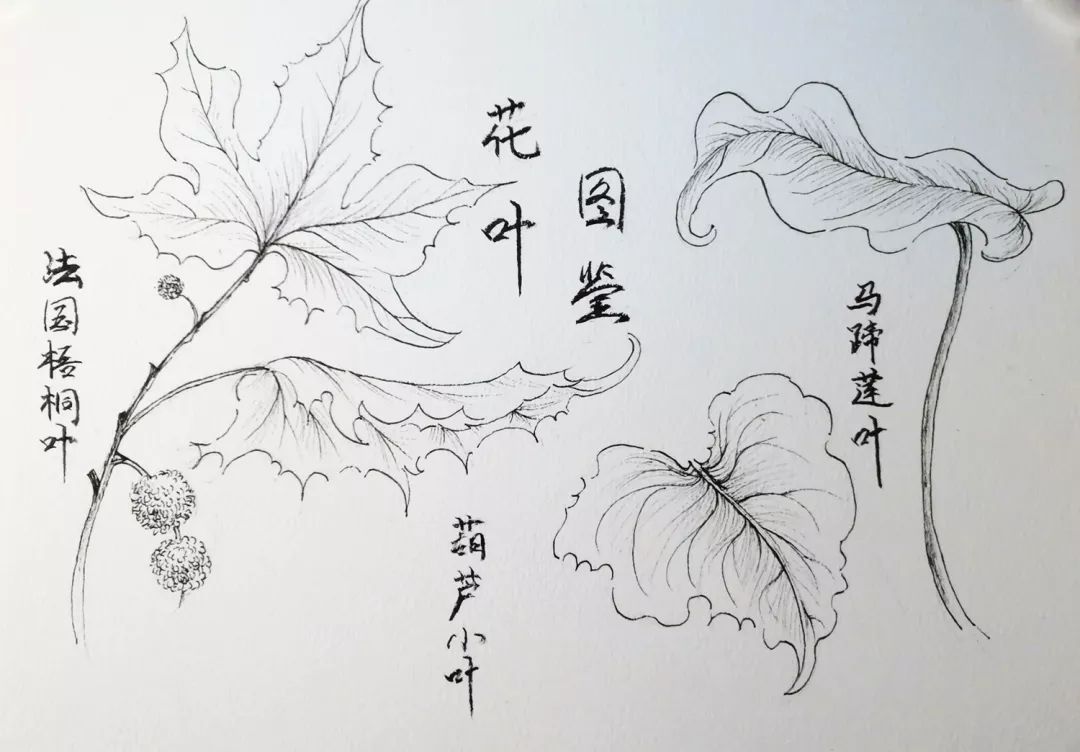 花叶
图鉴
法国梧桐叶
葫芦小叶
马蹄莲叶